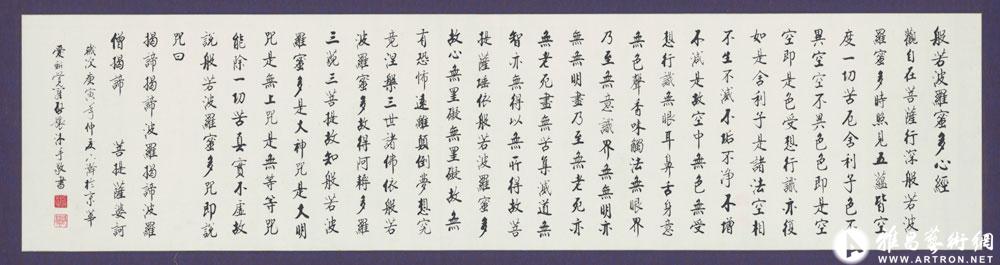 般若波羅蜜多心經
觀自在菩薩行深般若波
羅蜜多時照見五蘊皆空
度一切苦厄舍利子色不
異空空不異色色即是空
空即是色受想行識亦復
如是舍利子是諸法空相
不生不滅不垢不淨不增
不減是故空中無色無受
想行識無眼耳鼻舌身意
無色聲香味觸法無眼界
乃至無意識界無無明亦
無無明盡乃至無老死亦
無老死盡無苦集滅道無
智亦無得以無所得故菩
提薩埵依般若波羅蜜多
故心無罣礙無罣礙故無
有恐怖遠離顛倒夢想究
竟涅槃三世諸佛依般若
波羅蜜多故得阿耨多羅
三藐三菩提故知般若波
羅蜜多是大神咒是大明
咒是無上咒是無等等咒
能除一切苦真實不虛故
說般若波羅蜜多咒即說
咒曰
揭諦揭諦波羅揭諦波羅
僧揭諦 菩提薩婆訶
歲次庚寅年仲夏 於京華
愛新覺羅 沐手敬書
雅昌藝術網
WWW.ARTRON.NET